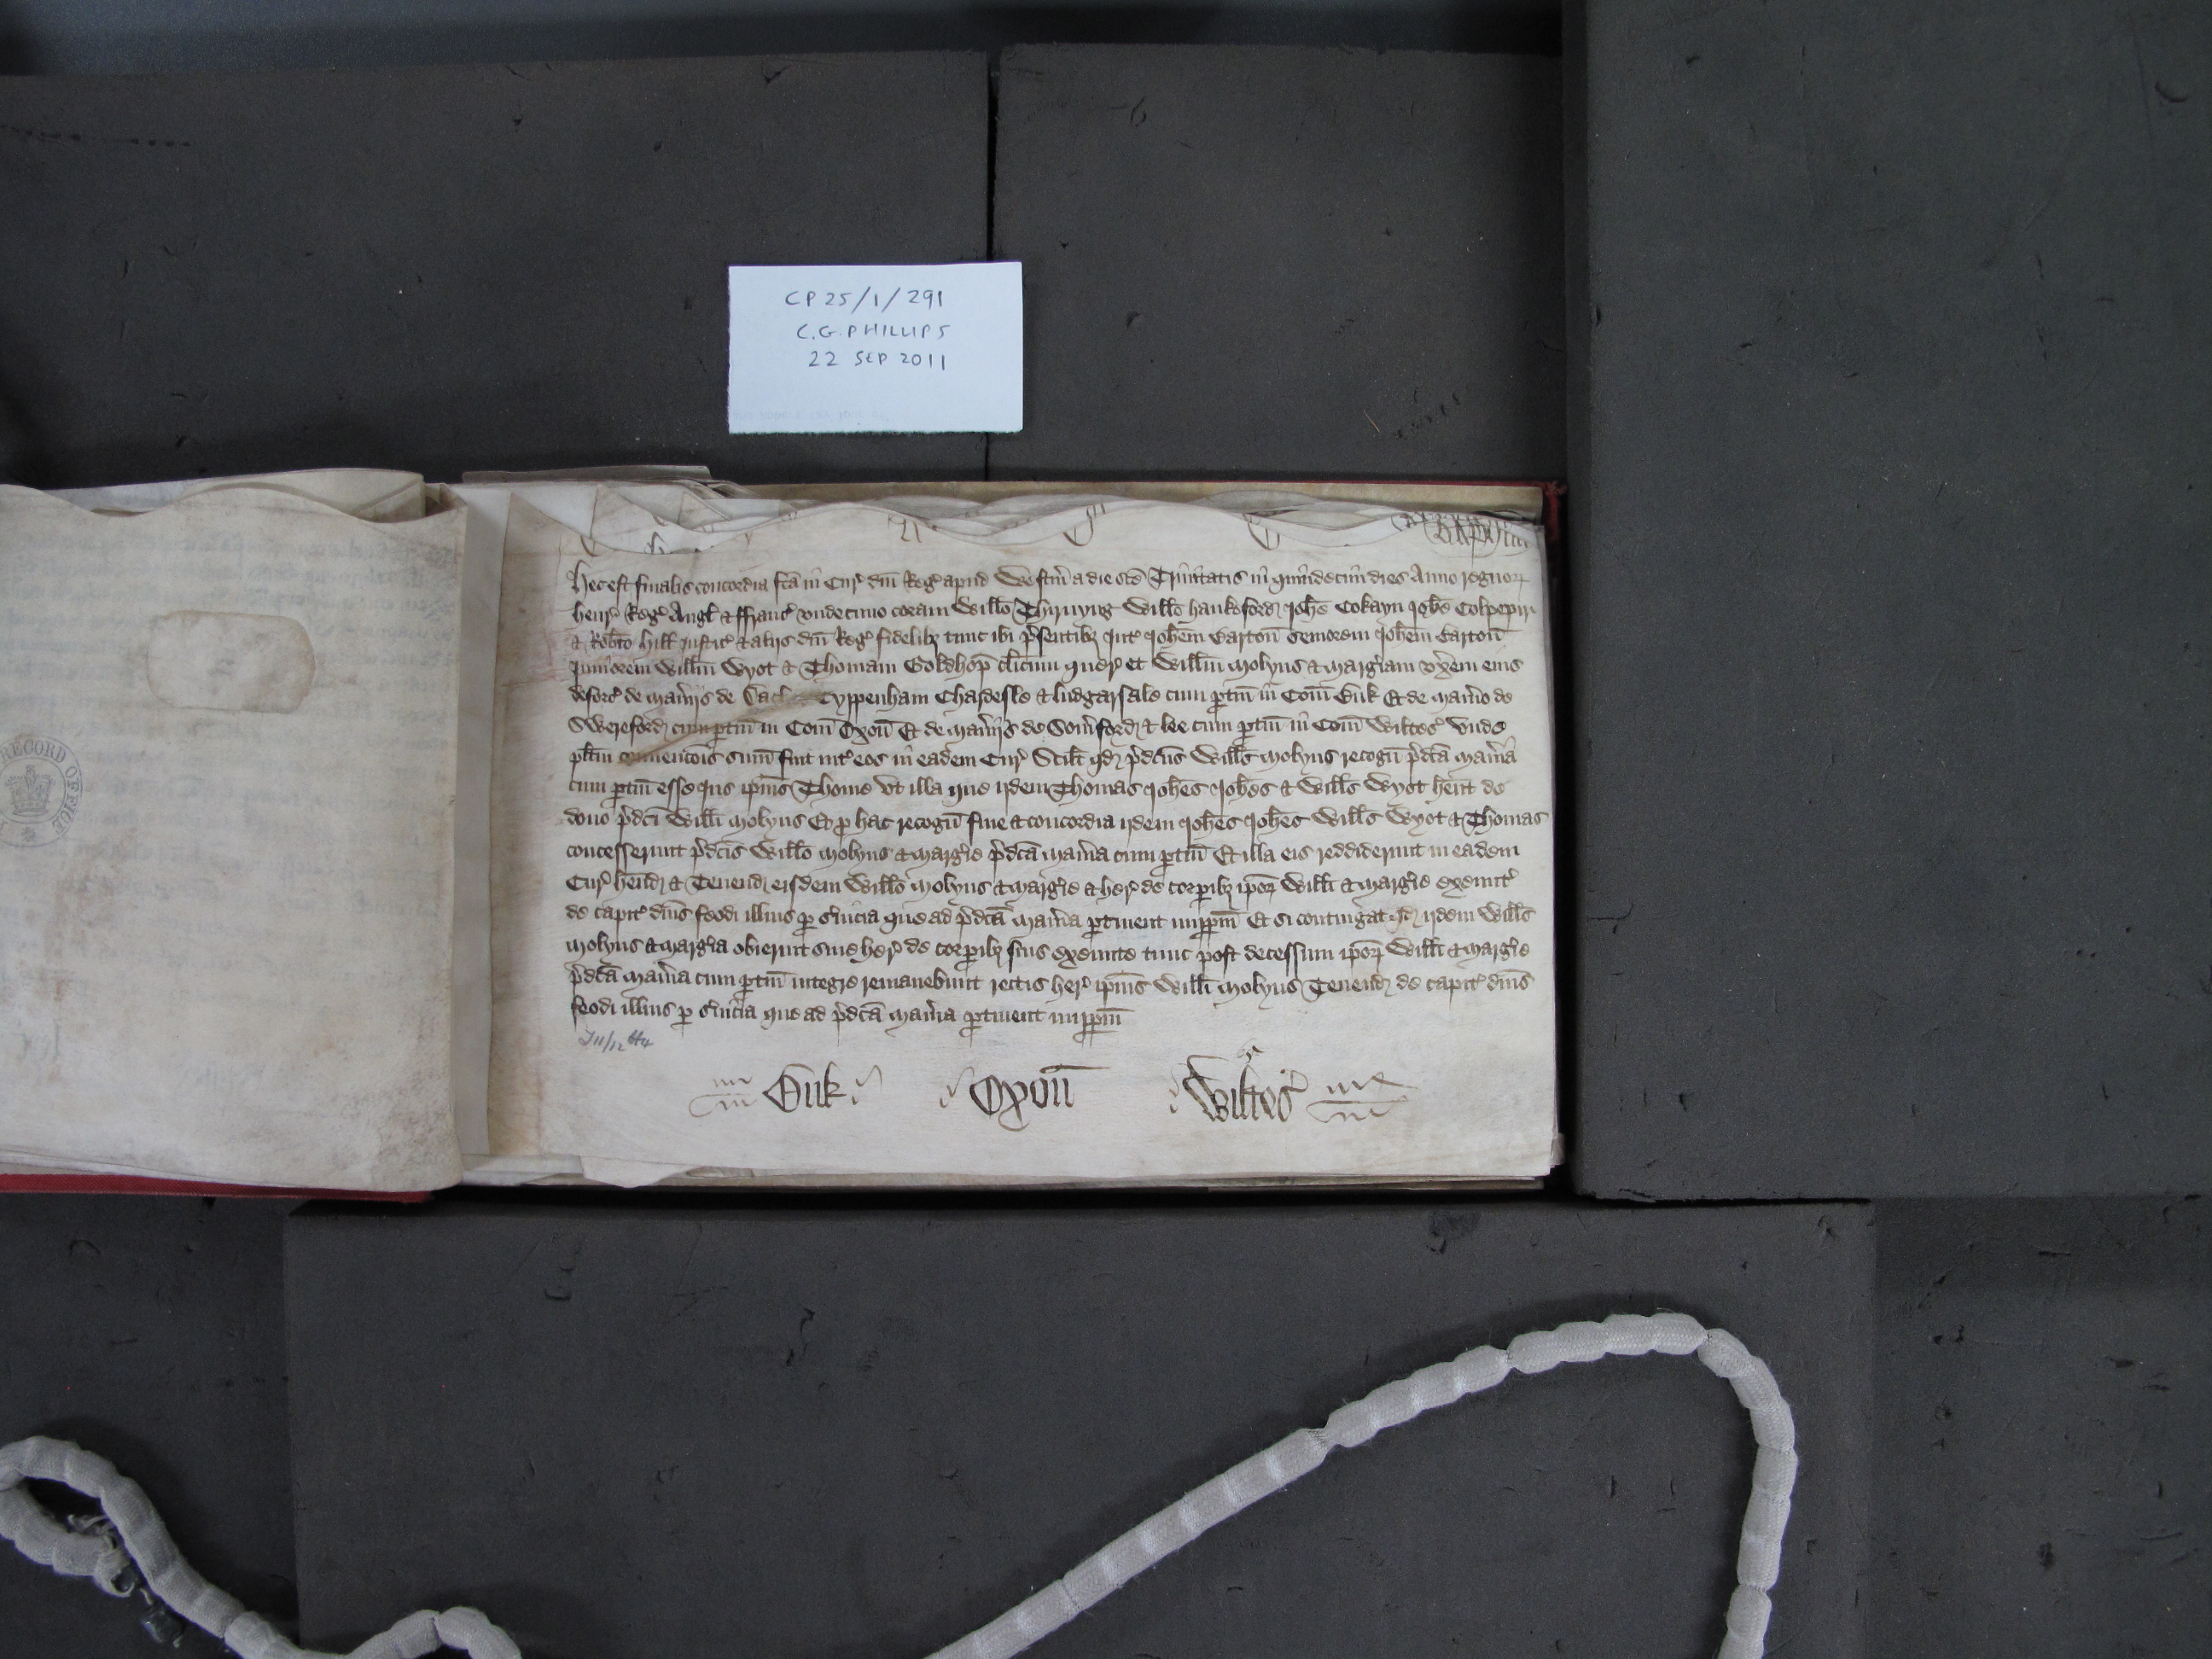 CP 25/1/291
C.G. PHILLIPS
22 SEP 2011
RECORD OFFICE
Hec est finalis concordia fc̄a in Cur̉ dn̄i Reg̉ apud Westm̄ a die sc̄e Trinitatis in quindecim dies Anno regnoꝝ
henr̉ Reg̉ Angl̉ & ffranc̉ undecimo coram Will̄o Thirnyng Will̄o hankeford Joh̄e Cokayn Joh̄e Colpepir
& Rob̄to hill Justic̉ & alijs dn̄i Reg̉ fidelibꝫ tunc ibi p̉sentibꝫ Int̉ Joh̄em Barton̄ seniorem Joh̄em Barton̄
Juniorem Will̄m Wyot & Thomam Goldhop̄ cl̄icum quer̉ et Will̄m Molyns & Marg̉iam ux̄em eius
deforc̉ de man̉ijs de Cyppenham Chardesle & ludgarsale cum ꝑtin̄ in Com̄ Buk Et de man̉io de
Swereford cum ꝑtin̄ in Com̄ Oxon̄ Et de man̉ijs de Som̉ford & lee cum ꝑtin̄ in Com̄ Wiltes̉ Unde
pl̄itum convencōis sum̄ fuit int̉ eos in eadem Cur̉ Scil̄t qd p̉dc̄us Will̄s Molyns recogn̄ p̉dc̄a man̉ia
cum ꝑtin̄ esse Jus ip̄ius Thome ut illa que ijdem Thomas Joh̄es Joh̄es & Will̄s Wyot hēnt de
dono p̉dc̄i Will̄i Molyns Et ꝓ hac recogn̄ fine & concordia ijdem Joh̄es Joh̄es Will̄s Wyot & Thomas
concesserunt p̉dc̄is Will̄o Molyns & Marg̉ie p̉dc̄a man̉ia cum ꝑtin̄ Et illa eis reddiderunt in eadem
Cur̉ hēnd & Tenend eisdem Will̄o Molyns & Marg̉ie & her̉ de corꝑibꝫ ip̄oꝝ Will̄i & Marg̉ie exeunt̉
de capit̉ dn̄is feodi illius ꝑ s̉uicia que ad p̉dc̄a man̉ia ꝑtinent imꝑpm̄ Et si contingat qd ijdem Will̄s
Molyns & Marg̉ia obierint sine her̉ de corꝑibꝫ suis exeunte tunc post decessum ip̄oꝝ Will̄i & Marg̉ie
p̉dc̄a man̉ia cum ꝑtin̄ integre remanebunt rectis her̉ ip̄ius Will̄i Molyns Tenend de capit̉ dn̄is
feodi illius ꝑ s̉uicia que ad p̉dc̄a man̉ia ꝑtinent imꝑpm̄
11/12 H4
Buk Oxon̄ Wiltes̉